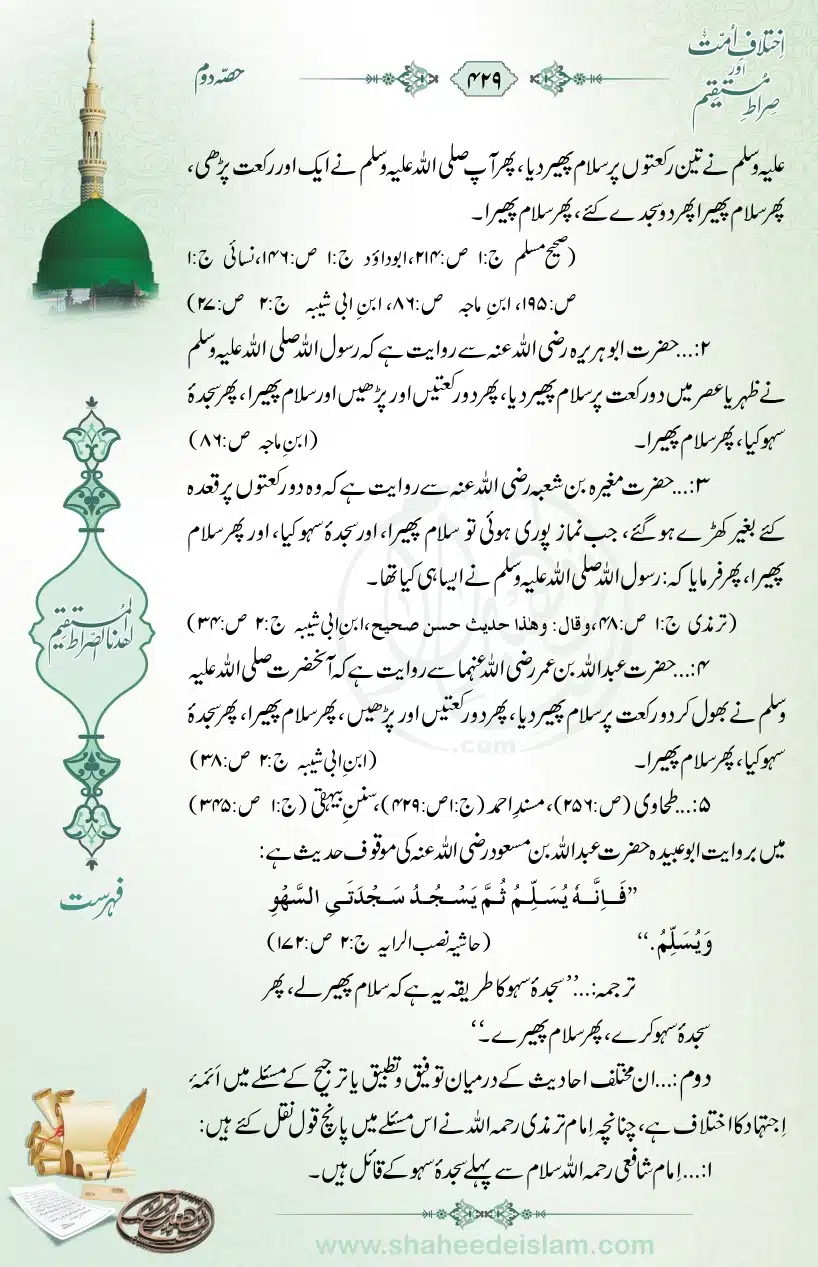 اِختلافِ اُمّت
اور
صِراطِ مُستقیم
۴۲۹
حصّہ دوم
علیہ وسلم نے تین رکعتوں پر سلام پھیر دیا، پھر آپ صلی اللہ علیہ وسلم نے ایک اور رکعت پڑھی،
پھر سلام پھیرا پھر دو سجدے کئے، پھر سلام پھیرا۔
(صحیح مسلم ج:۱ ص:۲۱۴، ابوداؤد ج:۱ ص:۱۴۶، نسائی ج:۱
ص:۱۹۵، ابنِ ماجہ ص:۸۶، ابنِ ابی شیبہ ج:۲ ص:۲۷)
۲:...حضرت ابوہریرہ رضی اللہ عنہ سے روایت ہے کہ رسول اللہ صلی اللہ علیہ وسلم
نے ظہر یا عصر میں دو رکعت پر سلام پھیر دیا، پھر دو رکعتیں اور پڑھیں اور سلام پھیرا، پھر سجدۂ
سہو کیا، پھر سلام پھیرا۔ (ابنِ ماجہ ص:۸۶)
۳:...حضرت مغیرہ بن شعبہ رضی اللہ عنہ سے روایت ہے کہ وہ دو رکعتوں پر قعدہ
کئے بغیر کھڑے ہوگئے، جب نماز پوری ہوئی تو سلام پھیرا، اور سجدۂ سہو کیا، اور پھر سلام
پھیرا، پھر فرمایا کہ: رسول اللہ صلی اللہ علیہ وسلم نے ایسا ہی کیا تھا۔
(ترمذی ج:۱ ص:۴۸، وقال: وھٰذا حدیث حسن صحیح، ابنِ ابی شیبہ ج:۲ ص:۳۴)
۴:...حضرت عبداللہ بن عمر رضی اللہ عنہما سے روایت ہے کہ آنحضرت صلی اللہ علیہ
وسلم نے بھول کر دو رکعت پر سلام پھیر دیا، پھر دو رکعتیں اور پڑھیں، پھر سلام پھیرا، پھر سجدۂ
سہو کیا، پھر سلام پھیرا۔ (ابنِ ابی شیبہ ج:۲ ص:۳۸)
۵:...طحاوی (ص:۲۵۶)، مسندِ احمد (ج:۱ ص:۴۲۹)، سننِ بیہقی (ج:۱ ص:۳۴۵)
میں بروایت ابوعبیدہ حضرت عبداللہ بن مسعود رضی اللہ عنہ کی موقوف حدیث ہے:
”فَاِنَّہٗ یُسَلِّمُ ثُمَّ یَسْجُدُ سَجْدَتَیِ السَّھْوِ
وَیُسَلِّمُ.“ (حاشیہ نصب الرایہ ج:۲ ص:۱۷۲)
ترجمہ:...”سجدۂ سہو کا طریقہ یہ ہے کہ سلام پھیر لے، پھر
سجدۂ سہو کرے، پھر سلام پھیرے۔“
دوم:...ان مختلف احادیث کے درمیان توفیق و تطبیق یا ترجیح کے مسئلے میں اَئمۂ
اِجتہاد کا اختلاف ہے، چنانچہ اِمام ترمذی رحمہ اللہ نے اس مسئلے میں پانچ قول نقل کئے ہیں:
۱:...اِمام شافعی رحمہ اللہ سلام سے پہلے سجدۂ سہو کے قائل ہیں۔
اھدنا الصراط المستقیم
فہرست
.com
www.shaheedeislam.com